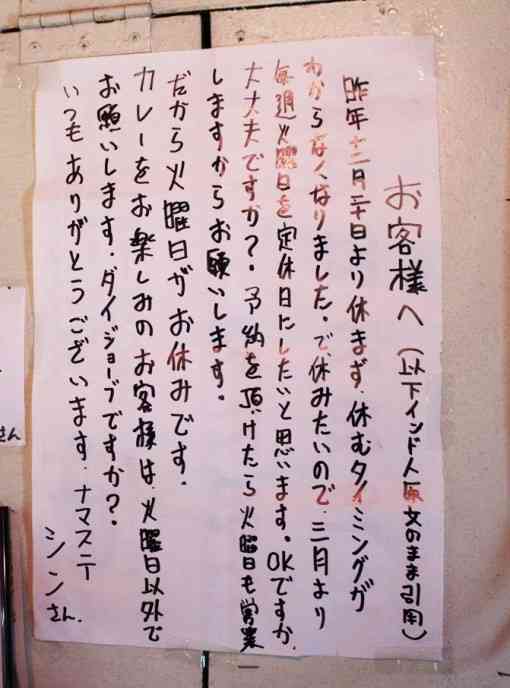 お客様へ(以下インド人原文のまま引用)
昨年十二月二十日より休まず、休むタイミングが
わからなくなりました。で、休みたいので、三月より
毎週火曜日を定休日にしたいと思います。OKですか、
大丈夫ですか?。予約を頂けたら火曜日も営業
しますからお願いします。
だから火曜日がお休みです。
カレーをお楽しみのお客様は、火曜日以外で
お願いします。ダイジョーブですか?
いつもありがとうございます。ナマステー
シンさん.
さん